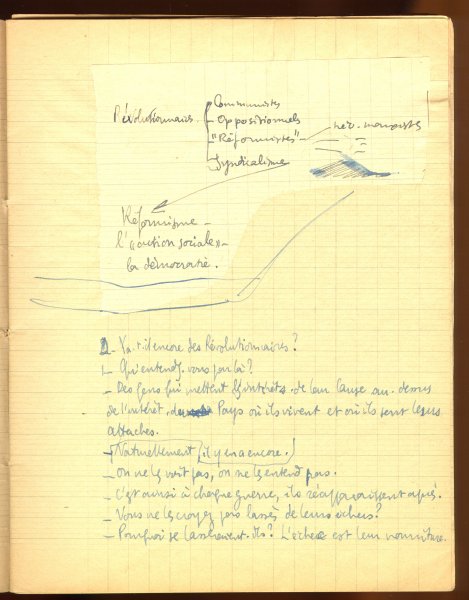 Révolutionnaires
Communistes
Oppositionnels
"Réformistes" — néo-marxistes
Syndicalisme
Réformisme –
l'"action sociale" –
la démocratie.
– Y a-t-il encore des Révolutionnaires ?
– Qu'entendez vous par là ?
– Des gens qui mettent les intérêts de leur cause au-dessus
de l'intérêt du Pays où ils vivent et où ils sont leurs
attaches.
– Naturellement (il y en a encore.)
– On ne les voit pas, on ne les entend pas.
– C'est ainsi à chaque guerre, ils réapparaissent après.
– Vous ne les croyez pas lassés de leurs échecs ?
– Pourquoi se lasseraient-ils ? L'échec est leur nourriture.